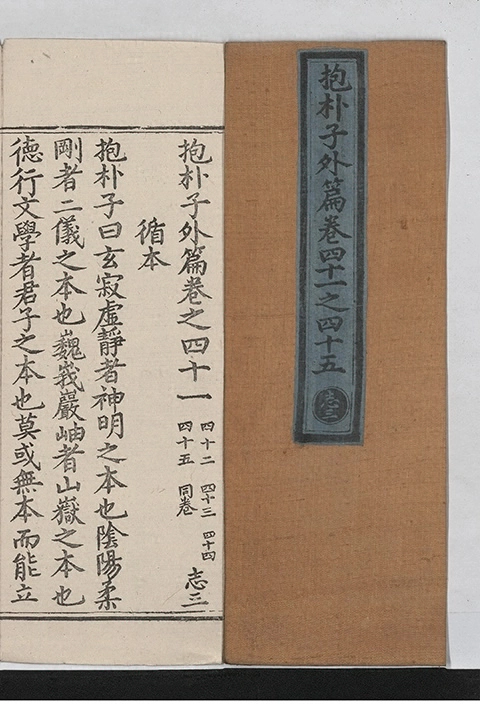 抱朴子外篇卷四十一之四十五
志三
抱朴子外篇卷之四十一
四十二 四十三 四十四
四十五 同卷
志三
循本
抱朴子曰玄寂虛靜者神明之本也陰陽柔
剛者二儀之本也巍峩巖岫者山嶽之本也
德行文學者君子之本也莫或無本而能立